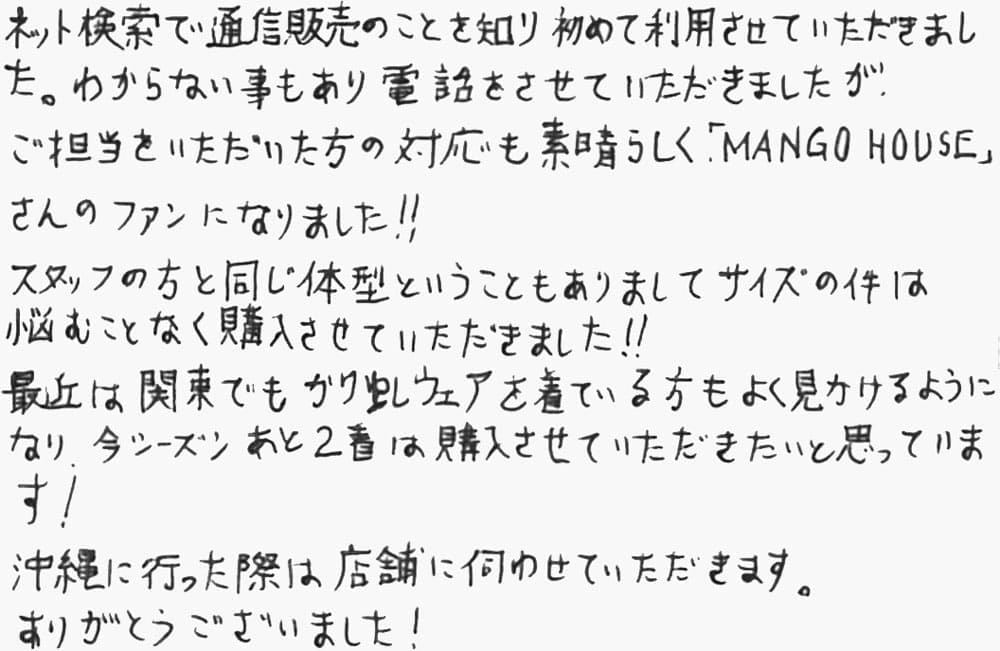 ネット検索で通信販売のことを知り初めて利用させていただきまし
た。わからない事もあり電話をさせていただきましたが、
ご担当をいただいた方の対応も素晴らしく「MANGO HOUSE」
さんのファンになりました!!
スタッフの方と同じ体型ということもありましてサイズの件は
悩むことなく購入させていただきました!!
最近は関東でもかりゆしウェアを着ている方もよく見かけるように
なり、今シーズンあと2着は購入させていただきたいと思っていま
す!
沖縄に行った際は店舗に伺わせていただきます。
ありがとうございました!